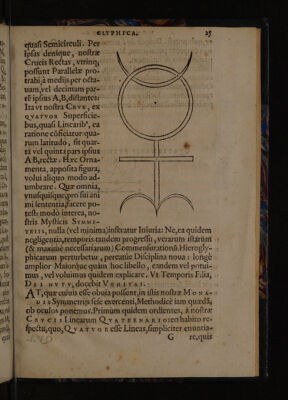 GLYPHICA. 25
quasi Semicirculi. Per
ipsas denique, nostræ
Crucis Rectas, vtrinq;
possunt Parallelæ pro-
trahi à medijs per octa-
uam, vel decimam par-
tē ipsius A,B, distantes:
Ita vt nostra CRVX, ex
QVATVOR Superficie-
bus, quasi Linearibꝰ, ea
ratione cōficiatur: qua-
rum latitudo, sit quar-
ta vel quinta pars ipsius
AB, rectæ. Hæc Orna-
menta, apposita figura,
volui aliquo modo ad-
umbrare. Quæ omnia,
vnusquisque, pro sui ani-
mi sententia, facere po-
test: modo interea, no-
stris Mysticis SYMME-
TRIIS, nulla (vel minima) inferatur Iniuria: Ne, ea quidem
negligentia, temporis tandem progressu, verarum istarūm
(& maximè necessariarum) Commensurationū Hierogly-
phicarum perturbetur, pereatue Disciplina noua: longè
amplior Maiorque quàm hoc libello, eandem vel potui-
mus, vel voluimus quidem explicare. Vt Temporis Filia,
DEI NVTV, docebit VERITAS.
AT, quæ cuiuis esse obuia possent, in istis nostræ MONA-
DIS Symmetrijs sese exercenti, Methodicè iam quædā,
ob oculos ponemus. Primùm quidem ordientes, à nostræ
CRVCIS Linearum QVATERNARIO: non habito re-
spectu, quo, QVATVOR esse Lineas, simpliciter enuntia-
G re, quis